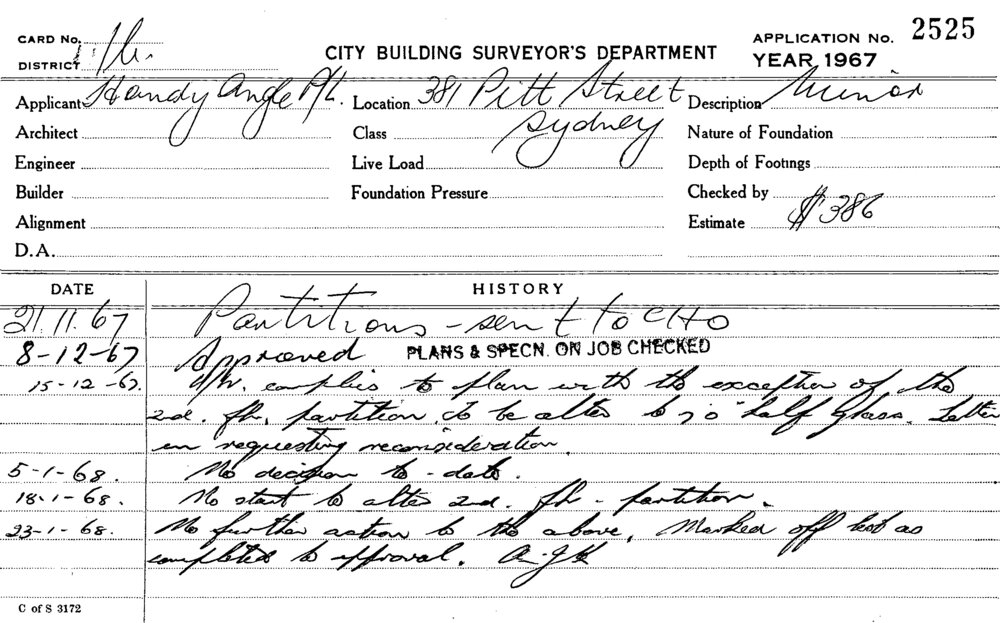 CARD No.
DISTRICT
CITY BUILDING SURVEYOR'S DEPARTMENT
APPLICATION No. 2525
YEAR 1967
Applicant Handy Angle P/L. Location 381 Pitt Street Description Minor
Architect Class Sydney Nature of Foundation
Engineer Live Load Depth of Footings
Builder Foundation Pressure Checked by
Alignment Estimate $386
D.A.
DATE HISTORY
21.11.67 Partitions - sent to CHO
8-12-67 Approved PLANS & SPECN. ON JOB CHECKED
15-12-67. complies to plan with the exception of the
2nd. flr. partition, to be alter to 7'0" half glass. Letter
in requesting reconsideration.
5-1-68. No decision to-date.
18-1-68. No start to alter 2nd. flr - partition.
23-1-68. No further action to the above. Marked off job as
completed to approval.
C of S 3172